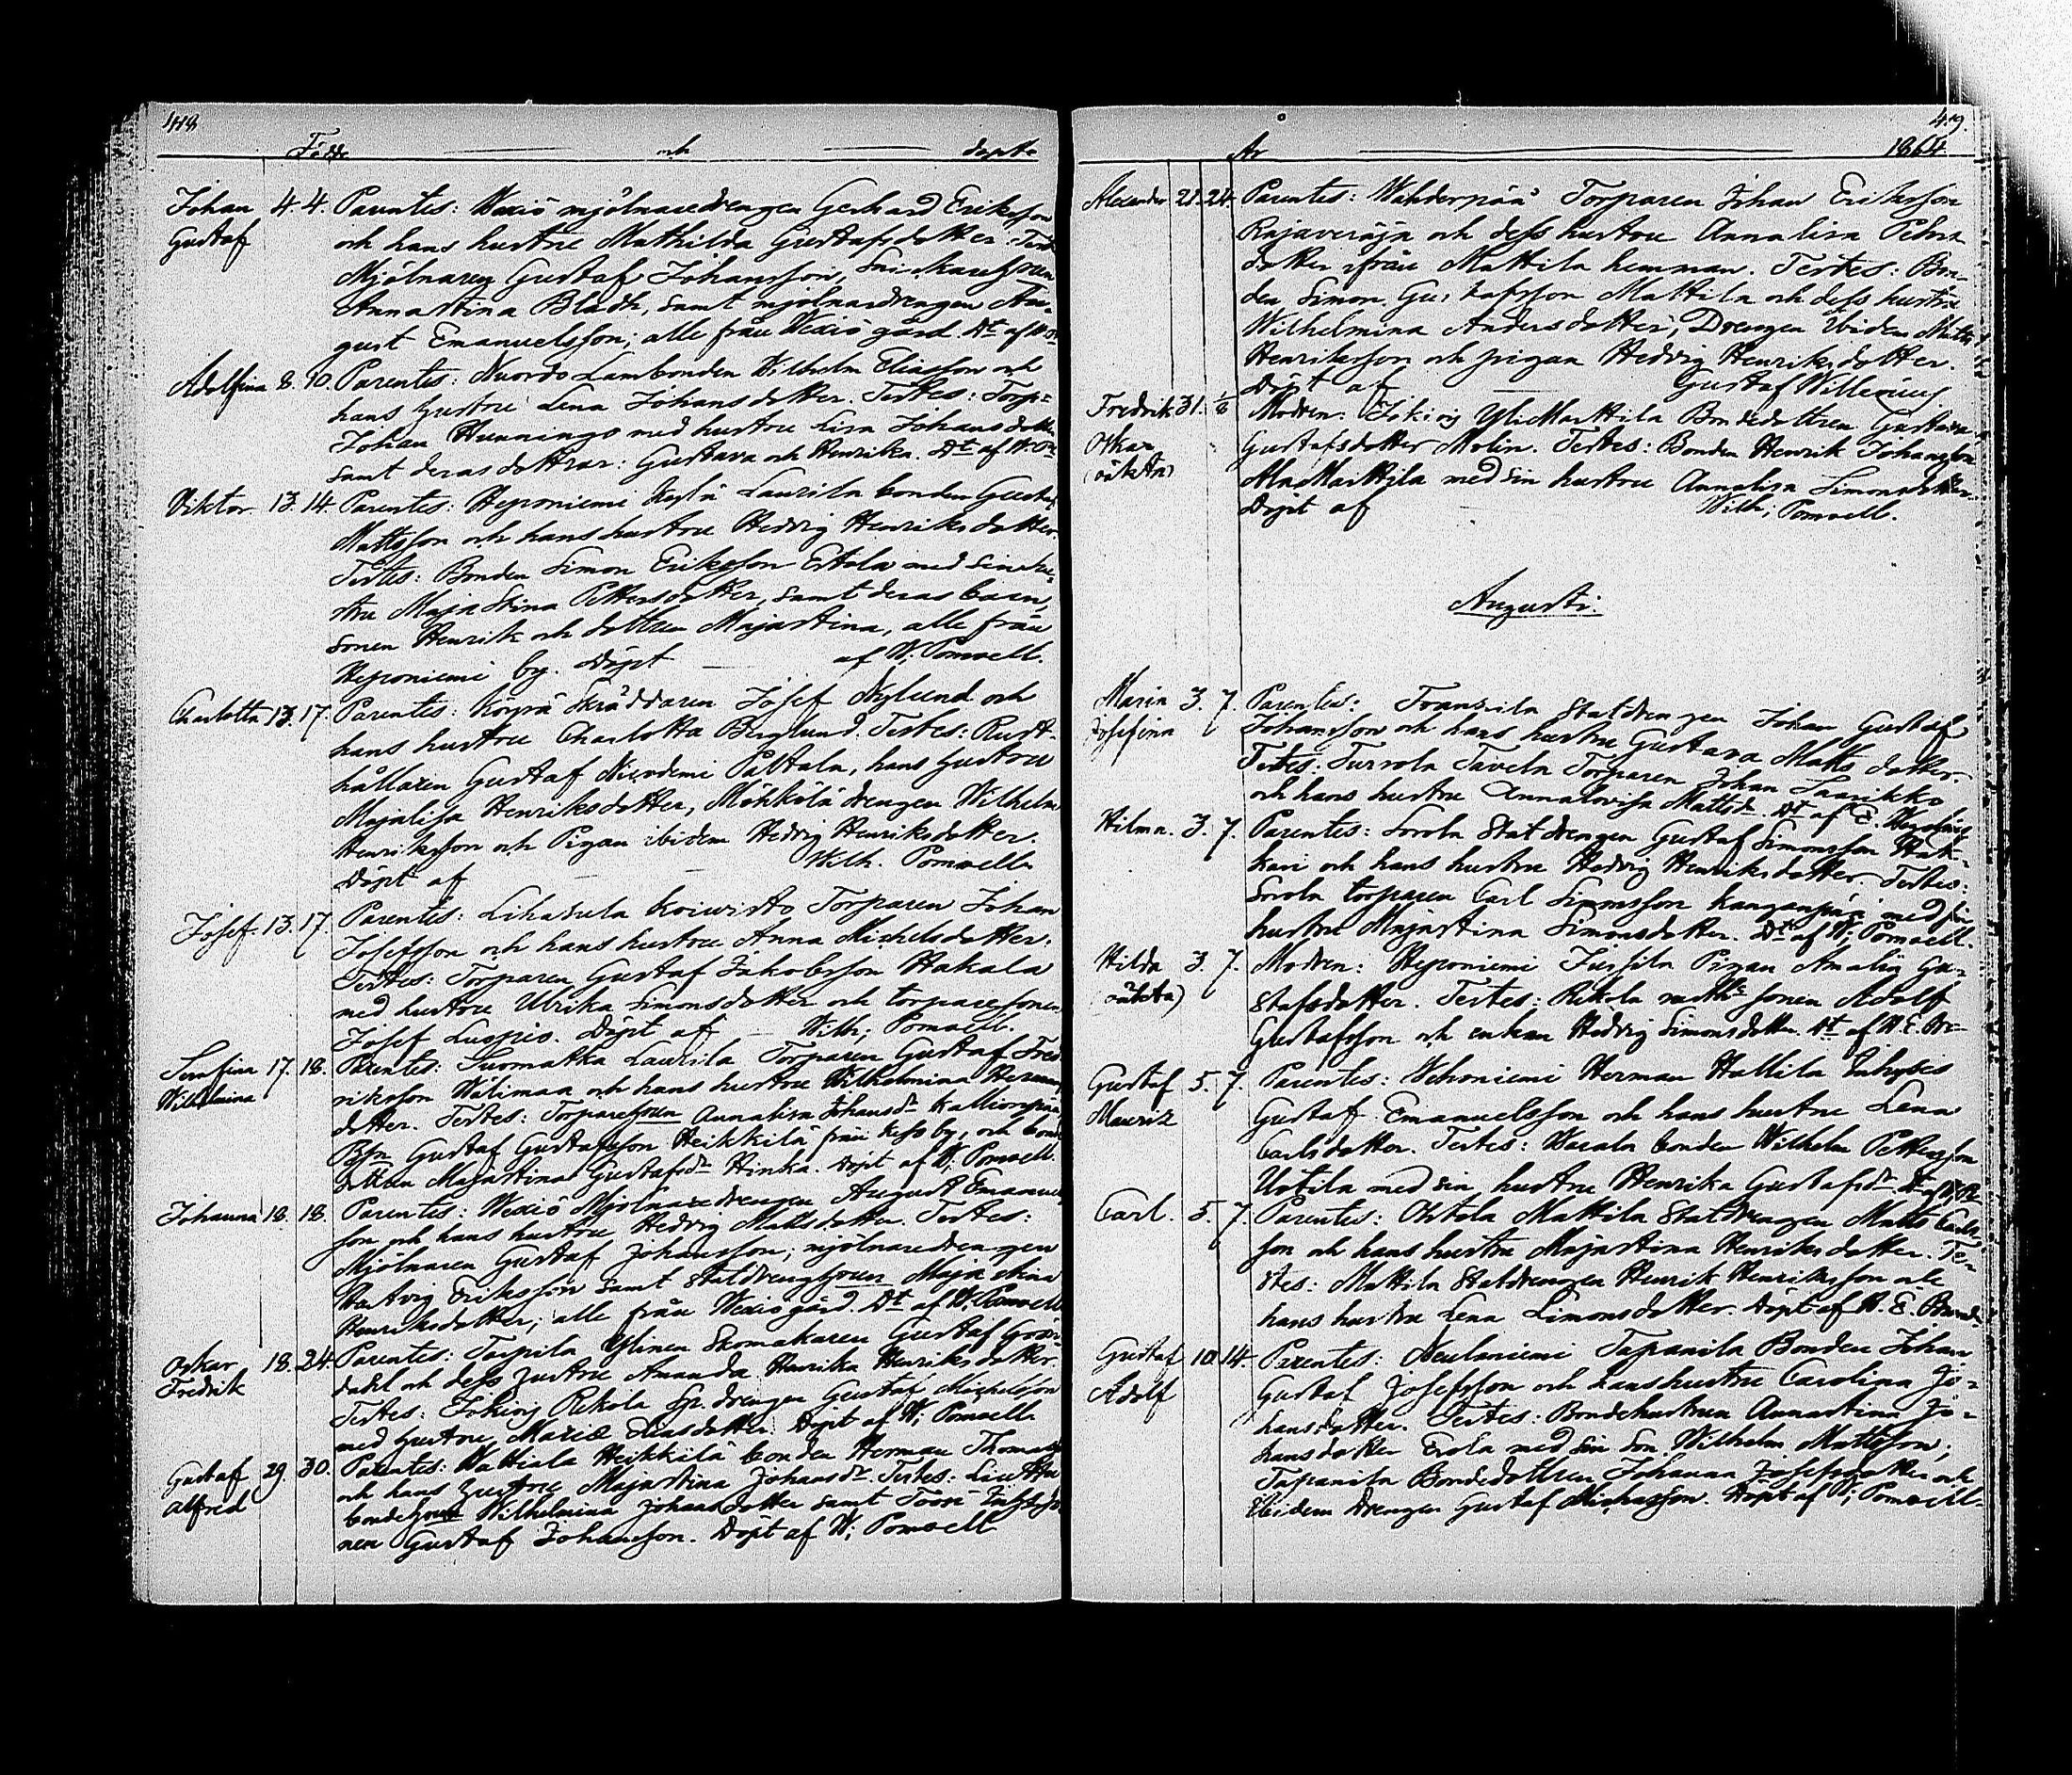 418
Födde och döpte
Johan 4. 4. Parentes: Wexiö mjölnaredrengen Gerhard Eriksson
Gustaf och hans hustru Mathilda Gustafsdotter. Test:
Mjölnaren Gustaf Johansson,
Annastina Bladh, samt mjölnardrengen Au-
gust Emanuelsson; alle från Wexiö gård. Dt af W. P.
Adolfina 8. 10. Parentes: Nuordo Lambonden Wilhelm Eliasson och
hans hustru Lena Johansdotter. Testes: Torp:
Johan Hennings med hustru Lisa Johansdotter
samt deras döttrar: Gustava och Henrika. Dt af W. P.
Viktor 13. 14. Parentes: Heponiemi Laurila bonden Gustaf
Mattsson och hans hustru Hedvig Henriksdotter.
Testes: Bonden Simon Eriksson Ertola med sin hu-
stru Maja Stina Pettersdotter, samt deras barn,
sonen Henrik och dottren Majastina, alle från
Heponiemi by. Döpt af W; Pomoell.
Charlotta 13. 17. Parentes: Körpä Skräddaren Josef Nylund och
hans hustru Charlotta Berglund. Testes: Rust-
hållaren Gustaf Nicodemi Paltala, hans hustru
Majalisa Henriksdotter, Möhkölä drengen Wilhelm
Henriksson och Pigan ibidem Hedvig Henriksdotter.
Döpt af Wilh. Pomoell
Josef. 13. 17. Parentes: Lihasula Koivisto Torparen Johan
Josefsson och hans hustru Anna Michelsdotter.
Testes: Torparen Gustaf Jakobsson Hakala
med hustru Ulrika Simonsdotter och torparesonen
Josef Luopio. Döpt af Wilh; Pomoell.
Serafina 17. 18. Parentes: Suomatka Laurila Torparen Gustaf Fred-
Wilhelmina riksson Wälimaa och hans hustru Wilhelmina Herman
dotter. Testes: Annalisa Johansdr Kalliopää
Gustaf Gustafsson Heikkilä från by, och bonde
dottren Majastina Gustafsdr Hinka. Döpt af W; Pomoell.
Johanna 18. 18. Parentes: Wexiö Mjölnaredrengen August Emanuels
son och hans hustru Hedvig Mattsdotter. Testes:
Mjölnaren Gustaf Johansson; mjölnaredrengen
Hartvig Eriksson samt Maja Stina
Henriksdotter; alle från Wexiö gård. Dt af W. Pomoell
Oskar 18. 24. Parentes: Torpila Ylinen Skomakaren Gustaf Grön-
Fredrik dahl och dess hustru Amanda Henrika Henriksdotter.
Testes: Jokiois Rekola drengen Gustaf Michelsson
med hustru, Maria Eliasdotter. Döpt af W; Pomoell
Gustaf 29. 30. Parentes: Wattiala Heikkilä bonden Herman Thomass
Alfred och hans hustru Majastina Johansdr. Testes:
Wilhelmina Johansdotter samt
nen Gustaf Johansson. Döpt af W; Pomoell
419.
År 1864
Alexander 21. 24. Parentes: Wähderpää Torparen Johan Eriksson
Rajaveräjä och dess hustru Annalisa Pehrs
dotter ifrån Mattila hemman. Testes: Bon-
den Simon Gustafsson Mattila och dess hustru
Wilhelmina Andersdotter; Drengen ibidem Matts
Henriksson och pigan Hedvig Henriksdotter.
Döpt af Gustaf Willenius
Fredrik 31. 1/8 Modren: Jokiois Yli Marttila Bondedottren Gustava
Oskar Gustafsdotter Molin. Testes: Bonden Henrik Johansson
(oäkta) Ala Marttila med sin hustru Annalisa Simonsdotter.
Döpt af Wilh; Pomoell.
Augusti.
Maria 3. 7. Parentes: Franssila Statdrengen Johan Gustaf
Josefina Johansson och hans hustru Gustava Mattsdotter.
Testes: Turrola Tavela Torparen Johan Saarikko
och hans hustru Annalovisa Mattsdr. Dt af E.
Hilma. 3. 7. Parentes: Sorola Statdrengen Gustaf Simonsson Hak-
kari och hans hustru Hedvig Henriksdotter. Testes:
Sorola torparen Carl Simonsson Kanganpää med sin
hustru Majastina Simonsdotter. Dt af W; Pomoell.
Hilda 3. 7. Modren: Heponiemi Jussila Pigan Amalia Gu-
(oäkta) stafsdotter. Testes: Rekola sonen Adolf
Gustafsson och enkan Hedvig Simonsdotter. Dt af
Gustaf 5. 7. Parentes: Wehoniemi Herman Hallila Inhyses
Mauriz Gustaf Emanuelsson och hans hustru Lena
Carlsdotter. Testes: Wacala bonden Wilhelm Pettersson
Uotila med sin hustru Henrika Gustafsdr.
Carl. 5. 7. Parentes: Ohtola Mattila Statdrengen Matts Carls-
son och hans hustru Majastina Henriksdotter. Te-
stes: Mattila Statdrengen Henrik Henriksson och
hans hustru Lena Simonsdotter. Döpt af
Gustaf 10. 14. Parentes: Neulaniemi Tapanila Bonden Johan
Adolf Gustaf Josefsson och hans hustru Carolina Jo-
hansdotter. Testes: Bondehustrun Annastina Jo-
hansdotter Erola med sin son, Wilhelm Mattsson;
Tapanila Bondedottren Johanna Josefsdotter och
ibidem drengen Gustaf Michelsson. Döpt af W; Pomoell.